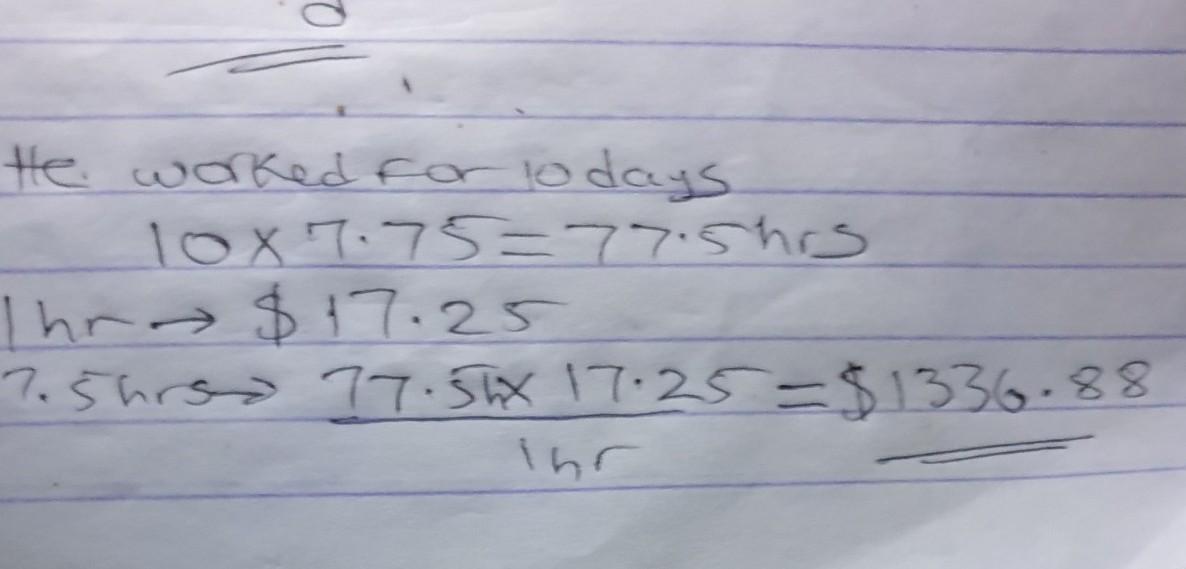 d
He worked for 10 days
10 x 7.75 = 77.5hrs
1 hr → $17.25
7.5hrs → 77.5h x 17.25 = $1336.88
1hr